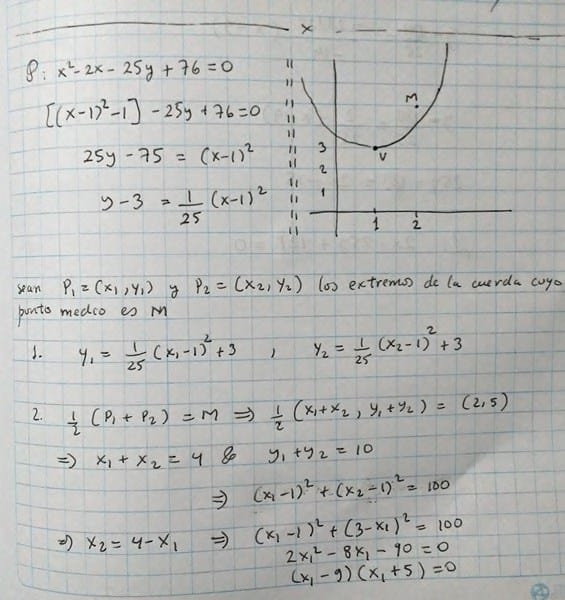 x
P: x² - 2x - 25y + 76 = 0
[(x-1)² - 1] - 25y + 76 = 0
25y - 75 = (x-1)²
y - 3 = 1/25 (x-1)²
M
V
3
2
1
1 2
sean P₁ = (x₁, y₁) y P₂ = (x₂, y₂) los extremos de la cuerda cuyo
punto medio es M
1. y₁ = 1/25 (x₁-1)² + 3 , y₂ = 1/25 (x₂-1)² + 3
2. 1/2 (P₁ + P₂) = M ⇒ 1/2 (x₁+x₂, y₁+y₂) = (2,5)
⇒ x₁ + x₂ = 4 & y₁ + y₂ = 10
⇒ (x₁-1)² + (x₂-1)² = 100
⇒ x₂ = 4 - x₁ ⇒ (x₁-1)² + (3-x₁)² = 100
2x₁² - 8x₁ - 90 = 0
(x₁-9)(x₁+5) = 0